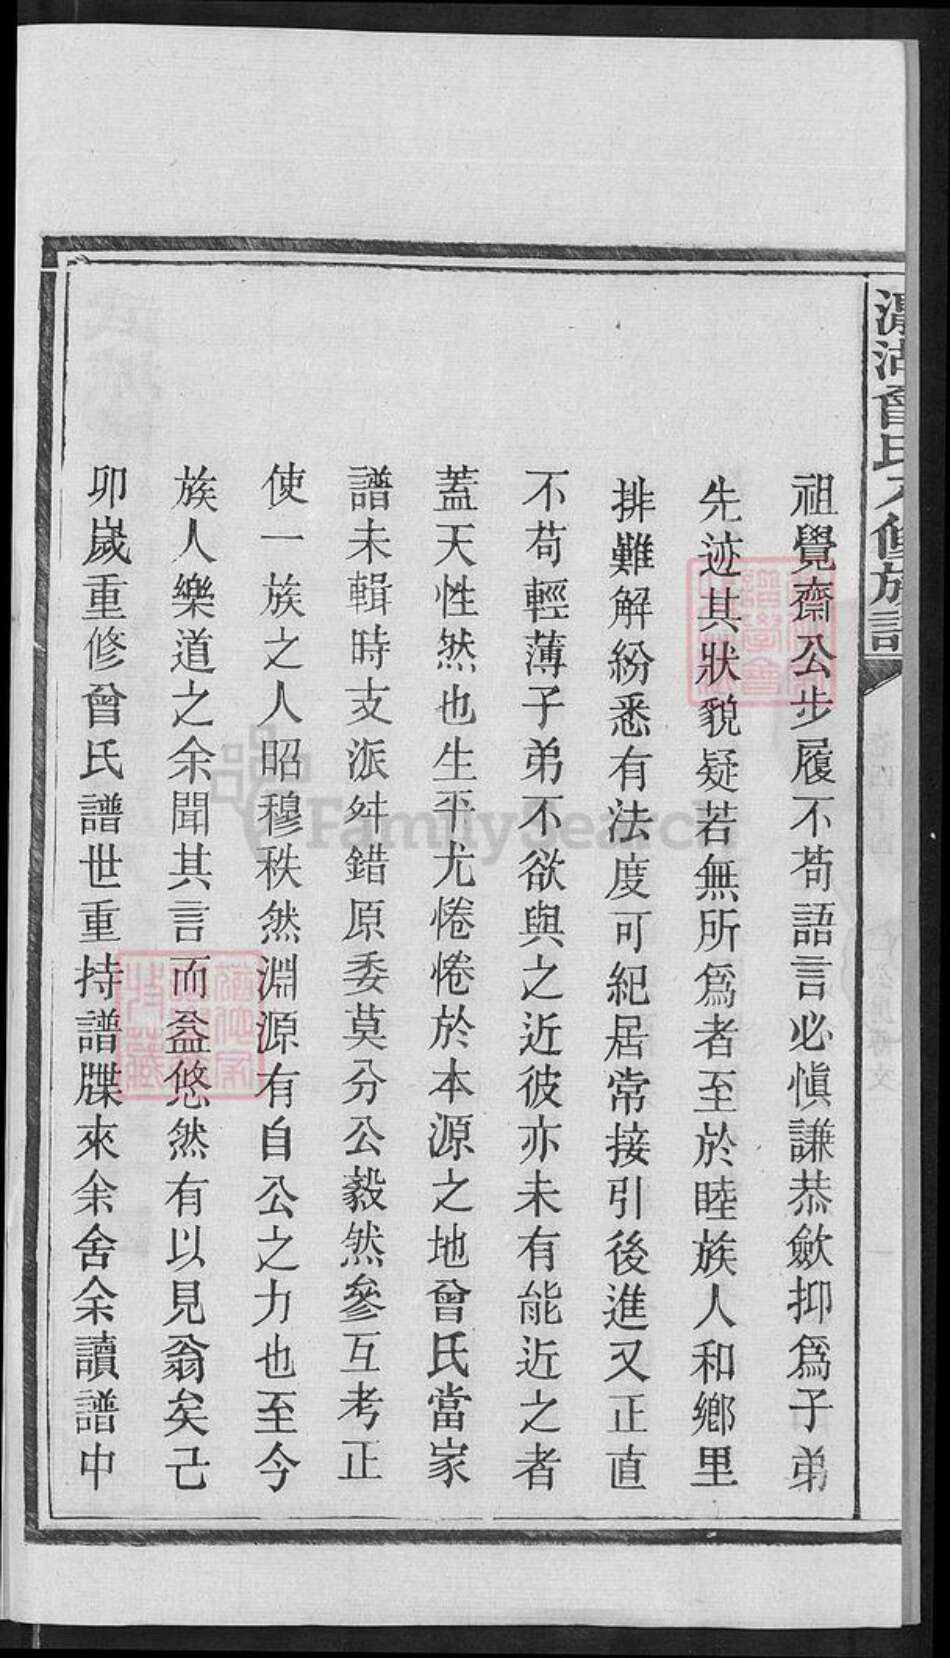 湄湖曾氏六修族譜
祖覺齋公步履不苟語言必愼謙恭歛抑爲子弟
先迹其狀貌疑若無所爲者至於睦族人和鄉里
排難解紛悉有法度可紀居常接引後進又正直
不苟輕薄子弟不欲與之近彼亦未有能近之者
蓋天性然也生平尤惓惓於本源之地曾氏當家
譜未輯時支派舛錯原委莫分公毅然參互考正
使一族之人昭穆秩然淵源有自公之力也至今
族人樂道之余聞其言而益悠然有以見翁矣己
卯嵗重修曾氏譜世重持譜牒來余舍余讀譜中
FamilySearch